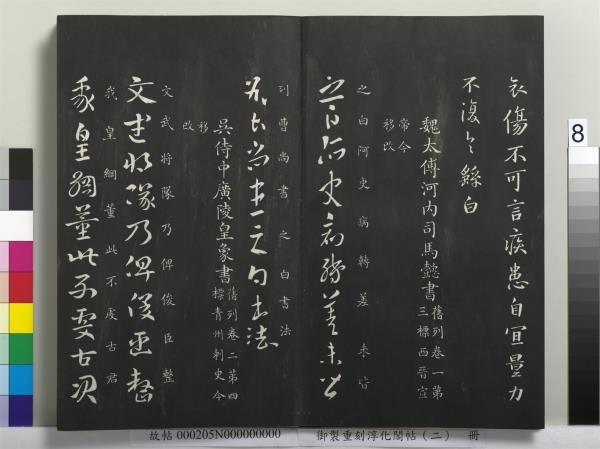 哀傷不可言疾患自宜量力
不復々繇白
魏太傅河內司馬懿書
舊列卷一第
三標西晉宣
帝今
移改
之白阿史病轉差未皆
之白阿史病轉差未皆
列曹尚書之白書法
吳侍中廣陵皇象書
舊列卷二第四
標青州刺史今
移
改
文武将隊乃俾俊臣整
文武将隊乃俾俊臣整
我皇綱董此不虔古君
我皇綱董此不虔古
故帖 000205N000000000 御製重刻淳化閣帖（二） 冊
8